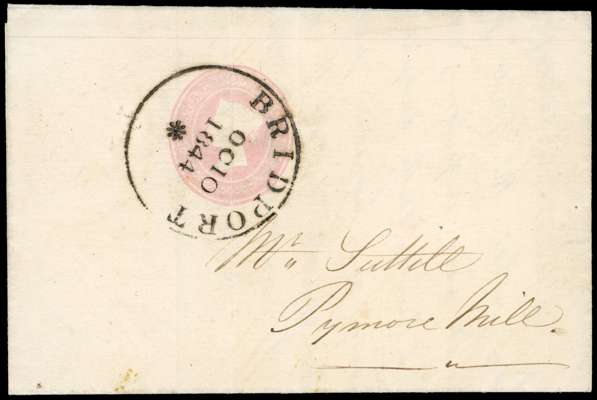 BRIDPORT
OC10
1844
Mr Suttill
Pymore Mill.